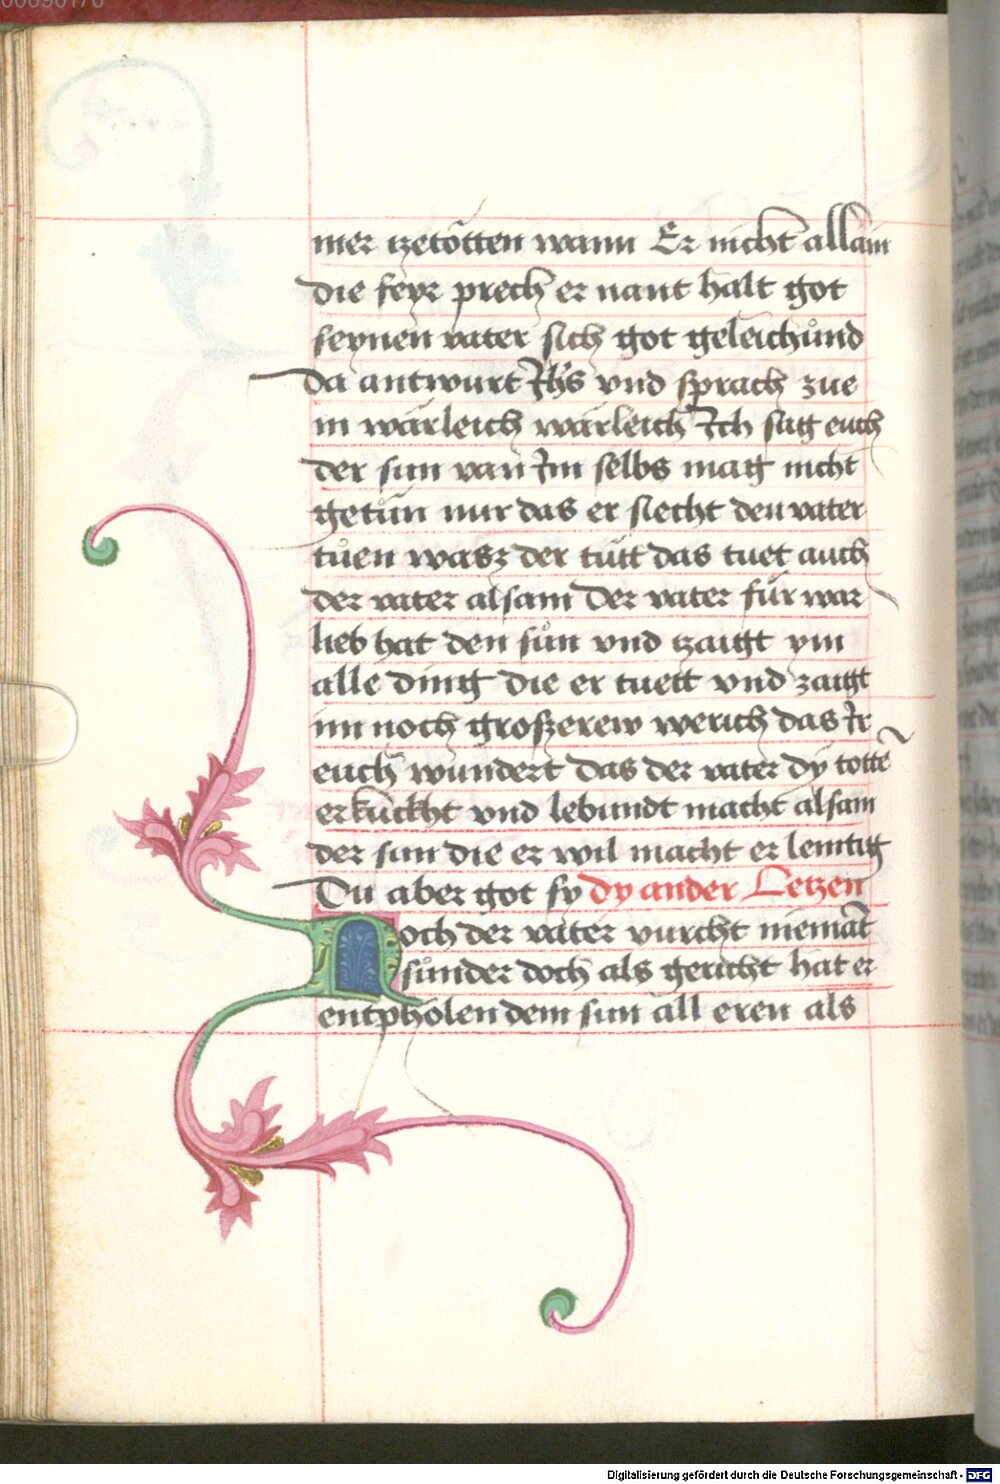 mer tzetötten wann Er nicht allain
die feyr prech er nant halt got
seynen vater sich got geleichund
da antwurt Jhs vnd sprach zue
in wärleich wärleich Ich sag euch
der sun van Im selbs mag nicht
getun nur das er siecht den vater
tuen wasz der tutt das tuet auch
der vater alsam Der vater für war
lieb hat den sun vnd tzaigt ym
alle ding die er tuett vnd zaigt
im noch groszerew werich das Ir
euch wundert das der vater dy totte
erkuckht vnd lebundt macht alsam
der sun die er wil macht er lemtig
Du aber got sy dy ander Letzen
Noch der väter vurcht niemat
sunder doch als gericht hat er
entpholen dem sun all eren als
Digitalisierung gefördert durch die Deutsche Forschungsgemeinschaft - DFG